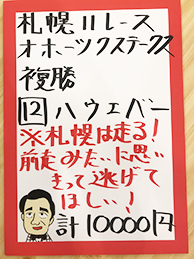 札幌11レース
オホーツクステークス
複勝
⑫ハウエバー
※札幌は走る!
前走みたいに思い
きって逃げて
ほしい!
計10000円